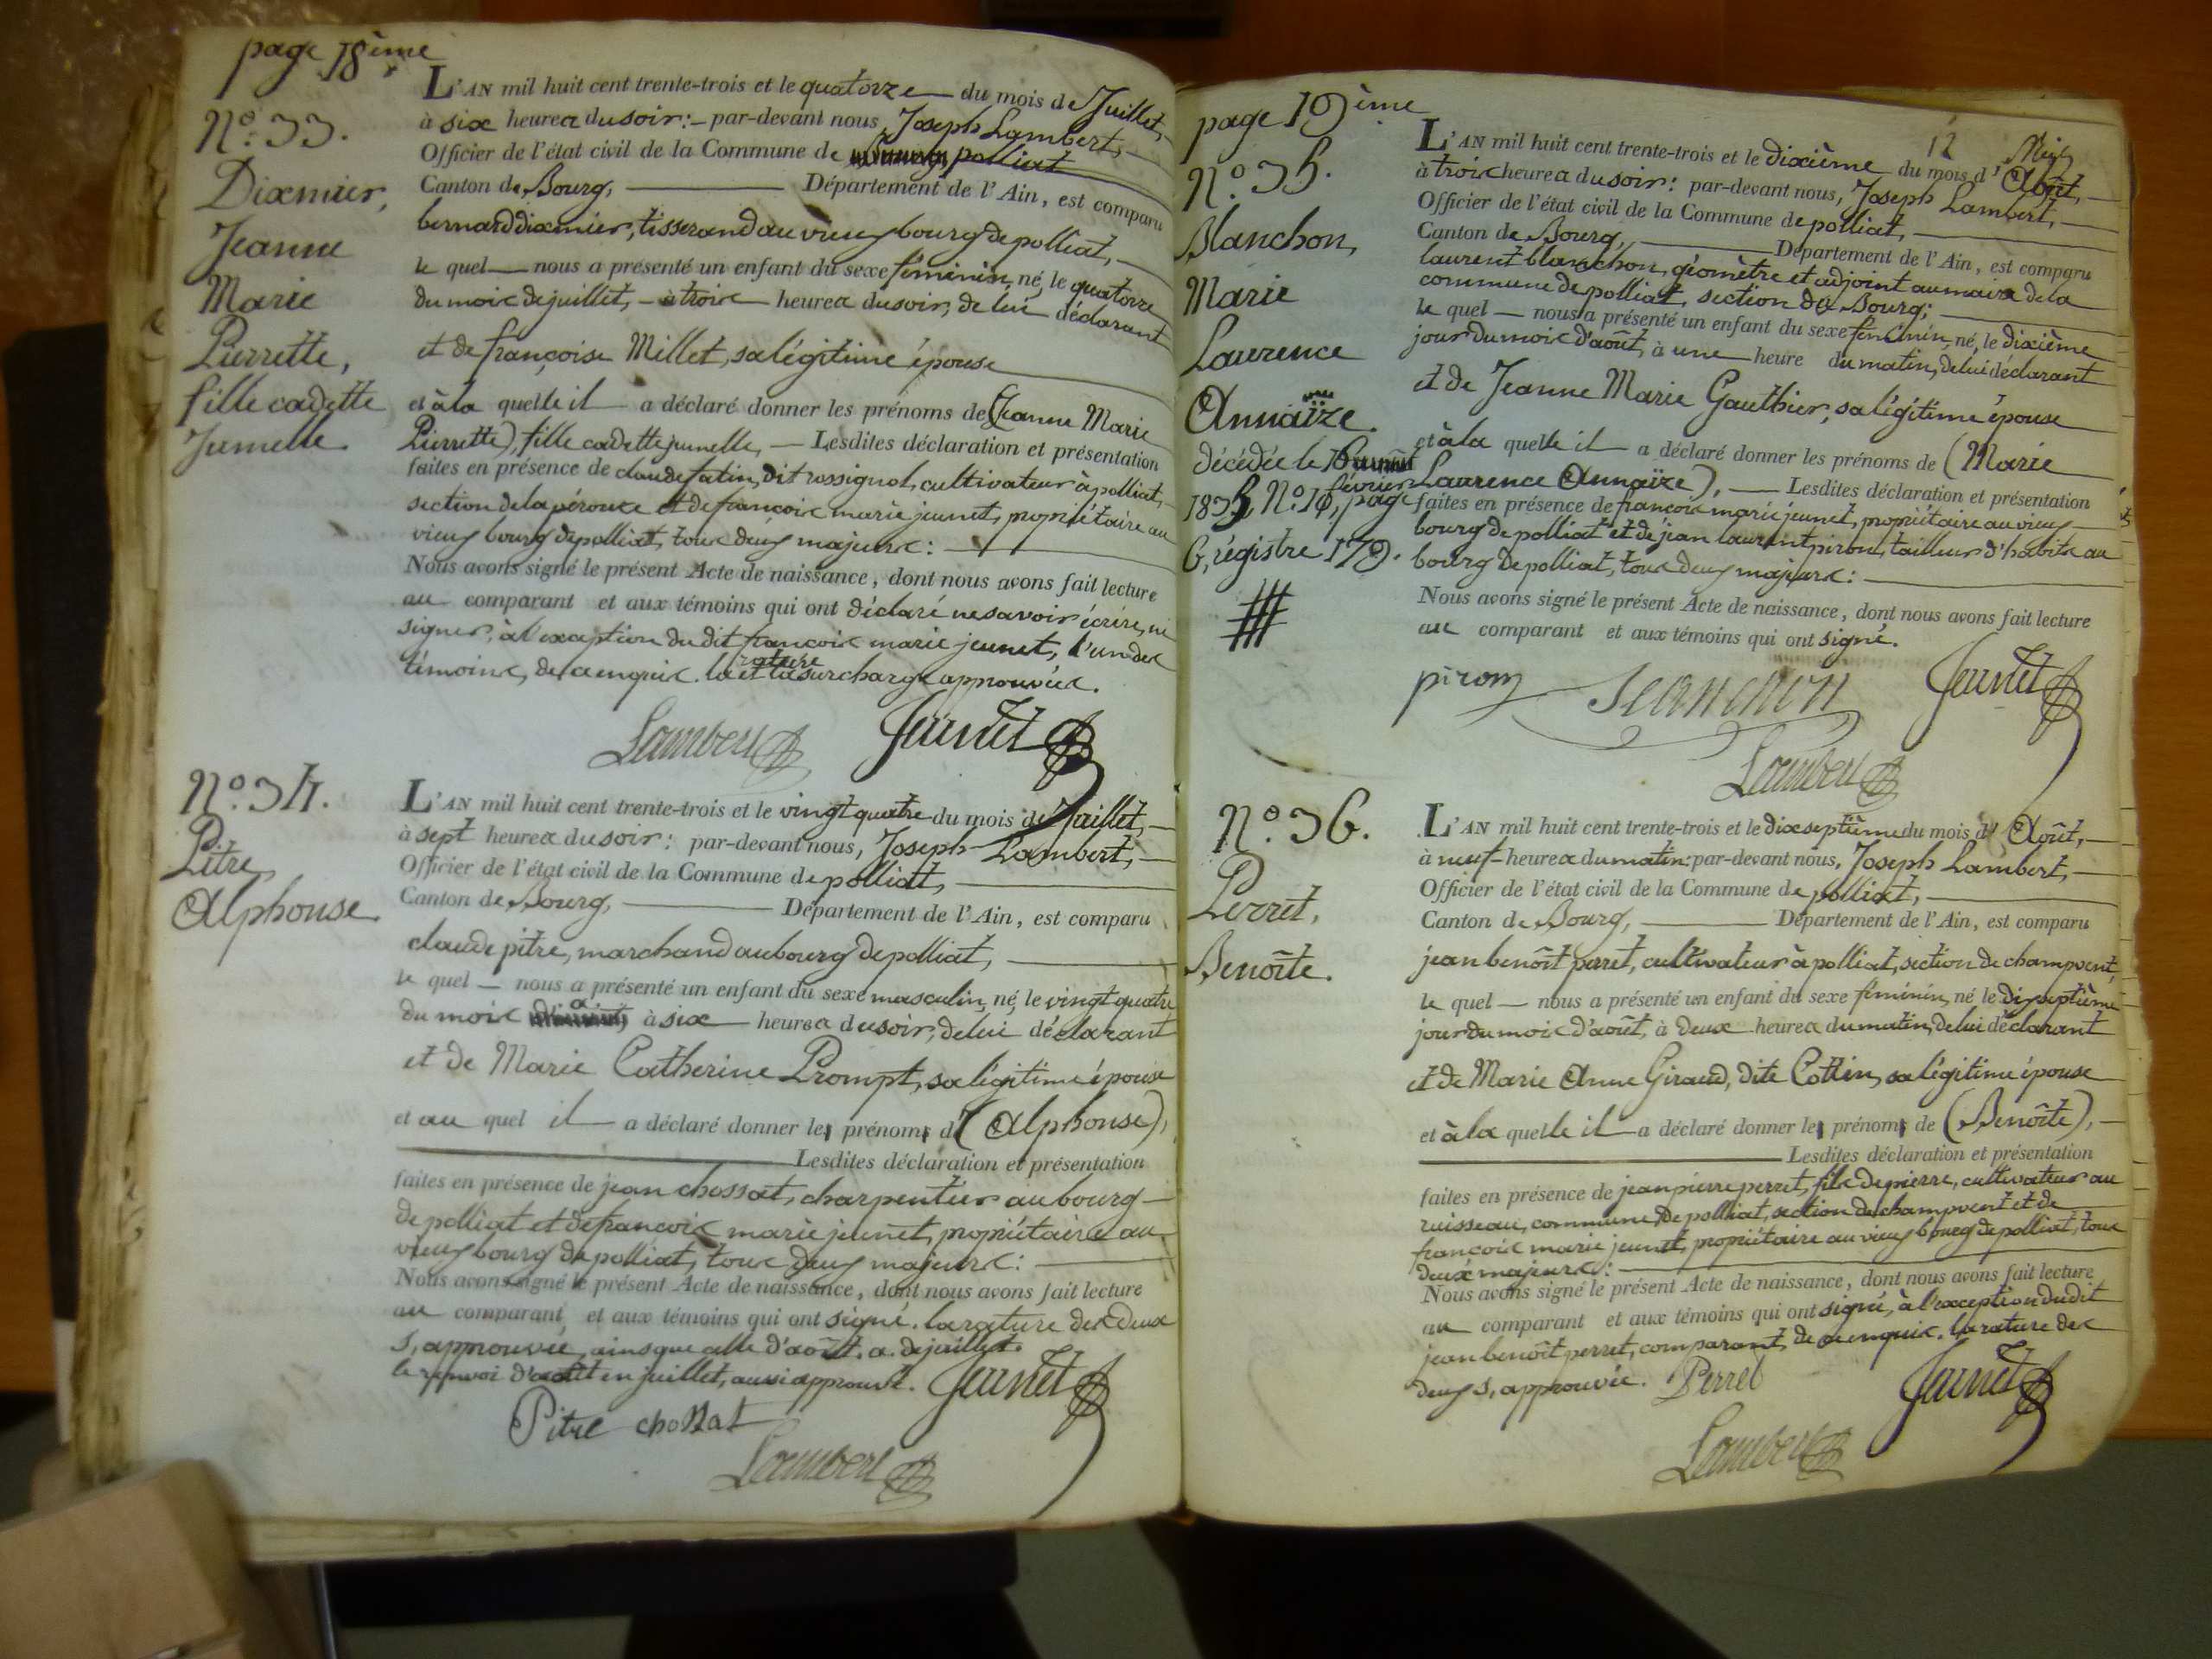 page 18ème
N.° 33.
Dixmier,
Jeanne
Marie
Pierrette,
fille cadette
Jumelle.
L'AN mil huit cent trente-trois et le quatorze du mois de Juillet,
à six heures du soir: par-devant nous, Joseph Lambert,
Officier de l'état civil de la Commune de polliat
Canton de Bourg, Département de l'Ain, est comparu
bernard dixmier, tisserand au vieux bourg de polliat,
le quel nous a présenté un enfant du sexe féminin, né, le quatorze
du mois de juillet, à trois heures du soir, de lui déclarant
et de françoise Millet, sa légitime épouse
et à la quelle il a déclaré donner les prénoms de (Jeanne Marie
Pierrette), fille cadette jumelle, Lesdites déclaration et présentation
faites en présence de claude fatin, dit rossignol, cultivateur à polliat,
section de la vérouze et de françois marie jeunet, propriétaire au
vieux bourg de polliat, tous deux majeurs:
Nous avons signé le présent Acte de naissance, dont nous avons fait lecture
au comparant et aux témoins qui ont déclaré ne savoir écrire, ni
signer, à l'exception du dit françois marie jeunet, l'un des
témoins, de ce enquis. la rature et la surcharge approuvées.
Lambert Jeunet
N.° 34.
Pitre
Alphonse.
L'AN mil huit cent trente-trois et le vingt quatre du mois de Juillet,
à sept heures du soir: par-devant nous, Joseph Lambert,
Officier de l'état civil de la Commune de polliat,
Canton de Bourg, Département de l'Ain, est comparu
claude pitre, marchand au bourg de polliat,
le quel nous a présenté un enfant du sexe masculin, né, le vingt quatre
du mois a à six heures du soir, de lui déclarant
et de Marie Catherine Prompt, sa légitime épouse
et au quel il a déclaré donner les prénoms d' (Alphonse),
Lesdites déclaration et présentation
faites en présence de jean chossat, charpentier au bourg
de polliat et de françois marie jeunet, propriétaire au
vieux bourg de polliat, tous deux majeurs:
Nous avons signé le présent Acte de naissance, dont nous avons fait lecture
au comparant et aux témoins qui ont signé. la rature des deux
s, approuvée, ainsi que celle d'août. a. de juillet.
le renvoi d'août en juillet, aussi approuvé. Jeunet
Pitre chossat
Lambert
page 19ème
N.° 35.
Blanchon,
Marie
Laurence
Annaïze.
décédée le 16 février
1835, N.° 10, page
6, régistre 179.
12
L'AN mil huit cent trente-trois et le dixième du mois d'Août,
à trois heures du soir: par-devant nous, Joseph Lambert,
Officier de l'état civil de la Commune de polliat,
Canton de Bourg, Département de l'Ain, est comparu
laurent blanchon, géomètre et adjoint au maire de la
commune de polliat, section de Bourg;
le quel nous a présenté un enfant du sexe féminin, né, le dixième
jour du mois d'août, à une heure du matin, de lui déclarant
et de Jeanne Marie Gauthier, sa légitime épouse
et à la quelle il a déclaré donner les prénoms de (Marie
Laurence Annaïze), Lesdites déclaration et présentation
faites en présence de françois marie jeunet, propriétaire au vieux
bourg de polliat et de jean laurent piron, tailleur d'habits au
bourg de polliat, tous deux majeurs:
Nous avons signé le présent Acte de naissance, dont nous avons fait lecture
au comparant et aux témoins qui ont signé.
piron Blanchon Jeunet
Lambert
N.° 36.
Perret,
Benoîte.
L'AN mil huit cent trente-trois et le dix septième du mois d'Août,
à neuf heures du matin: par-devant nous, Joseph Lambert,
Officier de l'état civil de la Commune de polliat,
Canton de Bourg, Département de l'Ain, est comparu
jean benoît perret, cultivateur à polliat, section de champvent,
le quel nous a présenté un enfant du sexe féminin, né le dixseptième
jour du mois d'août, à deux heures du matin, de lui déclarant
et de Marie Anne Giraud, dite Cottin, sa légitime épouse
et à la quelle il a déclaré donner les prénoms de (Benoîte),
Lesdites déclaration et présentation
faites en présence de jean pierre perret, fils de pierre, cultivateur au
ruisseau, commune de polliat, section de champvent et de
françois marie jeunet, propriétaire au vieux bourg de polliat, tous
deux majeurs:
Nous avons signé le présent Acte de naissance, dont nous avons fait lecture
au comparant et aux témoins qui ont signé, à l'exception du dit
jean benoît perret, comparant, de ce enquis. la rature des
deux s, approuvée. Perret Jeunet
Lambert